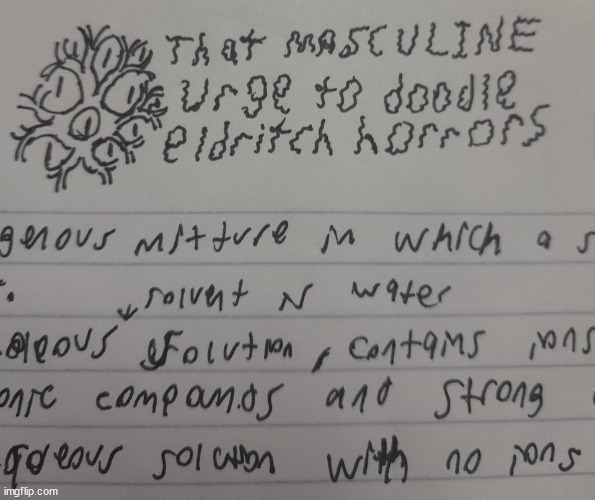 That MASCULINE
Urge to doodle
eldritch horrors
genous mixture in which a s
solvent N water
eous solution, contains ions
onic compounds and strong
queous solution with no ions
imgflip.com